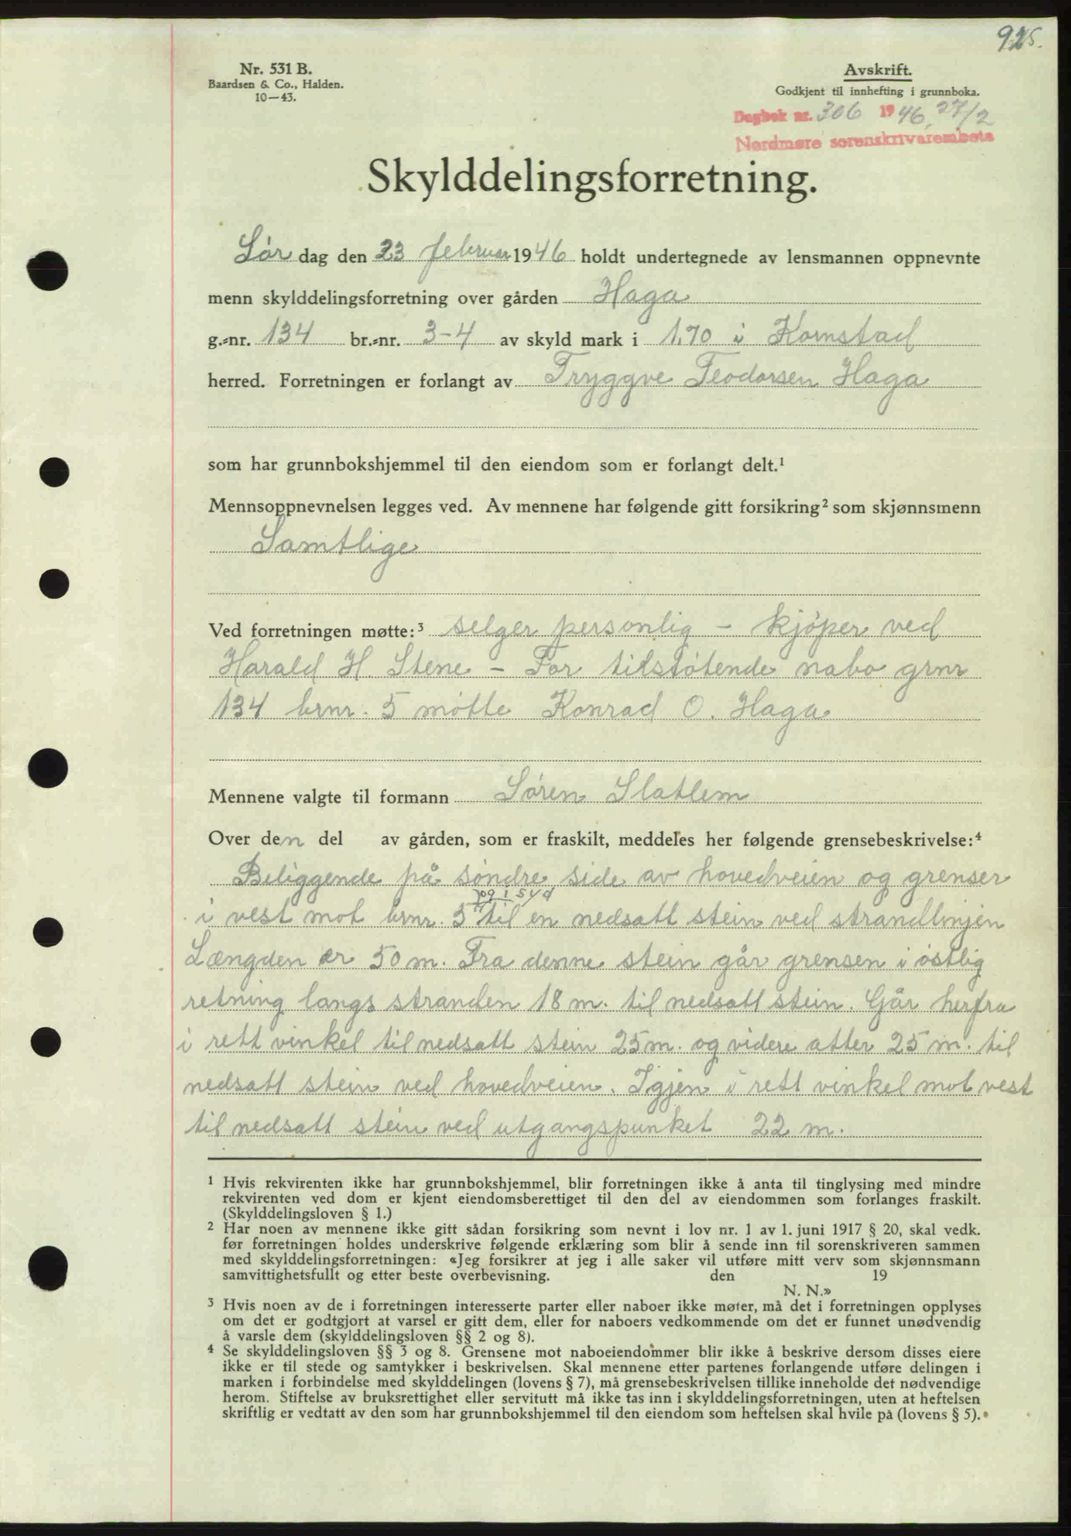 925.
Nr. 531 B.
Baardsen & Co., Halden.
10—43.
Avskrift.
Godkjent til innhefting i grunnboka.
Dagbok nr. 306 1946, 27/2
Nordmøre sorenskrivarembete
Skylddelingsforretning.
Lør dag den 23 februar 1946 holdt undertegnede av lensmannen oppnevnte
menn skylddelingsforretning over gården Haga
g.-nr. 134 br.-nr. 3-4 av skyld mark i 1,70 i Kornstad
herred. Forretningen er forlangt av Tryggve Teodorsen Haga
som har grunnbokshjemmel til den eiendom som er forlangt delt.¹
Mennsoppnevnelsen legges ved. Av mennene har følgende gitt forsikring² som skjønnsmenn
Samtlige
Ved forretningen møtte:³ selger personlig – kjøper ved
Harald H. Stene – For tilstøtende nabo grnr
134 brnr. 5 møtte Konrad O. Haga
Mennene valgte til formann Søren Slatlem
Over den del av gården, som er fraskilt, meddeles her følgende grensebeskrivelse:⁴
Beliggende på søndre side av hovedveien og grenser
i vest mot brnr. 5 og i syd til en nedsatt stein ved strandlinjen
Længden er 50 m. Fra denne stein går grensen i østlig
retning langs stranden 18 m. til nedsatt stein. Går herfra
i rett vinkel til nedsatt stein 25 m. og videre atter 25 m. til
nedsatt stein ved hovedveien. Igjen i rett vinkel mot vest
til nedsatt stein ved utgangspunket 22 m.
¹ Hvis rekvirenten ikke har grunnbokshjemmel, blir forretningen ikke å anta til tinglysing med mindre
rekvirenten ved dom er kjent eiendomsberettiget til den del av eiendommen som forlanges fraskilt.
(Skylddelingsloven § 1.)
² Har noen av mennene ikke gitt sådan forsikring som nevnt i lov nr. 1 av 1. juni 1917 § 20, skal vedk.
før forretningen holdes underskrive følgende erklæring som blir å sende inn til sorenskriveren sammen
med skylddelingsforretningen: «Jeg forsikrer at jeg i alle saker vil utføre mitt verv som skjønnsmann
samvittighetsfullt og etter beste overbevisning. den 19
N. N.»
³ Hvis noen av de i forretningen interesserte parter eller naboer ikke møter, må det i forretningen opplyses
om det er godtgjort at varsel er gitt dem, eller for naboers vedkommende om det er funnet unødvendig
å varsle dem (skylddelingsloven §§ 2 og 8).
⁴ Se skylddelingsloven §§ 3 og 8. Grensene mot naboeiendommer blir ikke å beskrive dersom disses eiere
ikke er til stede og samtykker i beskrivelsen. Skal mennene etter partenes forlangende utføre delingen i
marken i forbindelse med skylddelingen (lovens § 7), må grensebeskrivelsen tillike inneholde det nødvendige
herom. Stiftelse av bruksrettighet eller servitutt må ikke tas inn i skylddelingsforretningen, uten at heftelsen
skriftlig er vedtatt av den som har grunnbokshjemmel til den eiendom som heftelsen skal hvile på (lovens § 5).